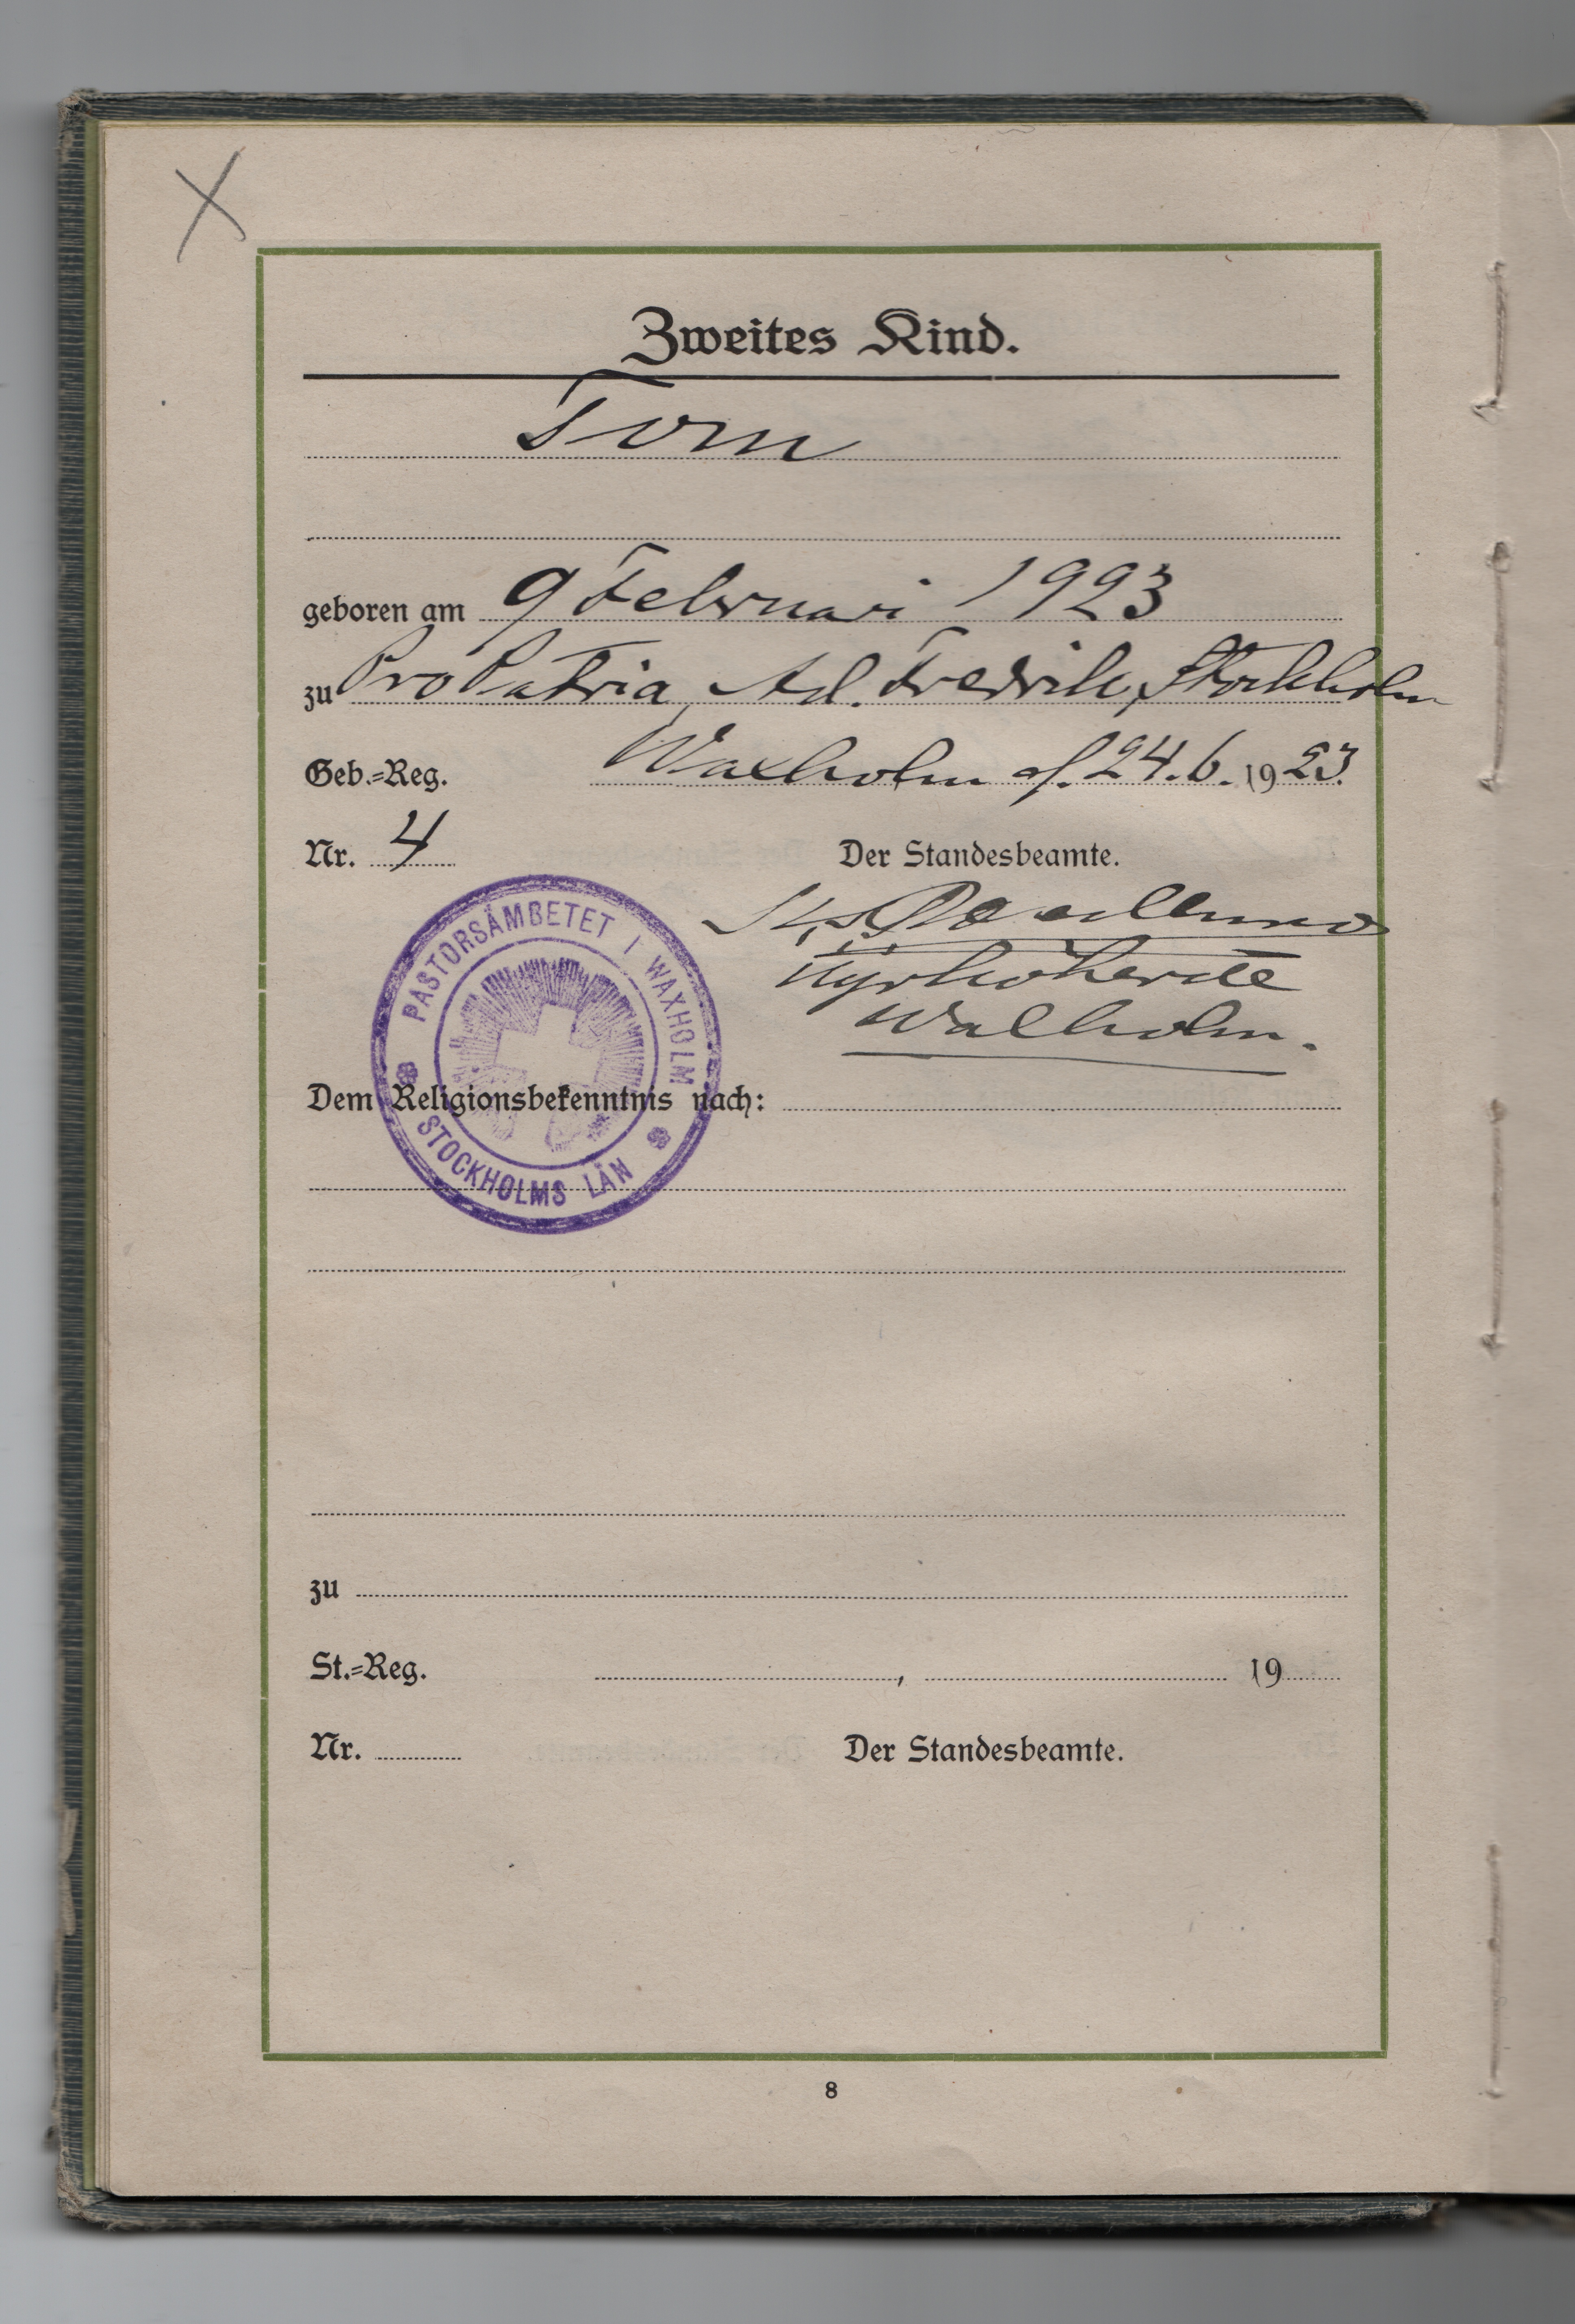 Zweites Kind.
Tom
geboren am 9 Februari 1923
zu Pro Patria, Ad. Fredrik, Stockholm
Geb.=Reg. Waxholm d. 24.6. 1923.
Nr. 4 Der Standesbeamte.
Kyrkoherde
Waxholm.
PASTORSÄMBETET I WAXHOLM
STOCKHOLMS LÄN
Dem Religionsbekenntnis nach:
zu
St.=Reg. , 19
Nr. Der Standesbeamte.
8